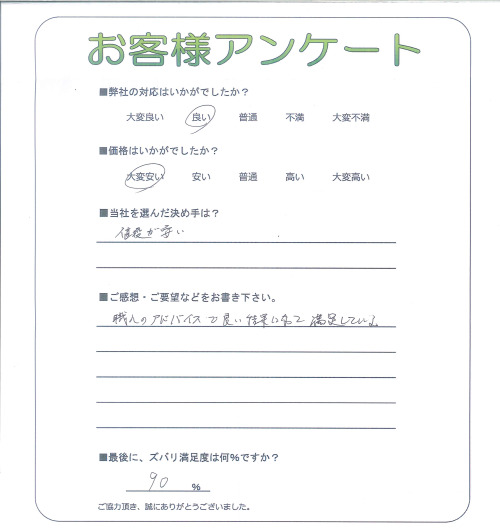 お客様アンケート
■弊社の対応はいかがでしたか？
大変良い 良い 普通 不満 大変不満
■価格はいかがでしたか？
大変安い 安い 普通 高い 大変高い
■当社を選んだ決め手は？
値段が安い
■ご感想・ご要望などをお書き下さい。
職人のアドバイスで良い結果になって満足している。
■最後に、ズバリ満足度は何%ですか？
90 %
ご協力頂き、誠にありがとうございました。